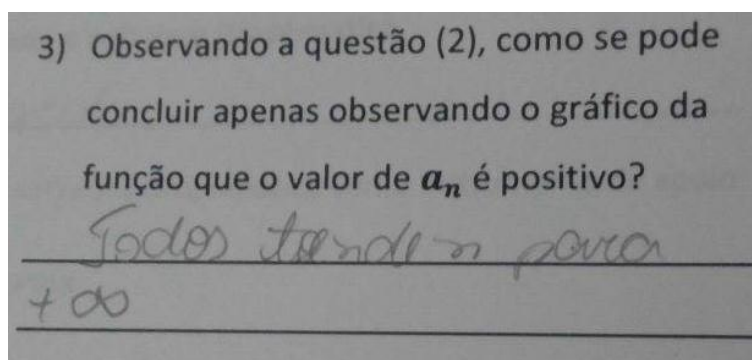 3) Observando a questão (2), como se pode
concluir apenas observando o gráfico da
função que o valor de aₙ é positivo?
Todos tendem para
+ ∞